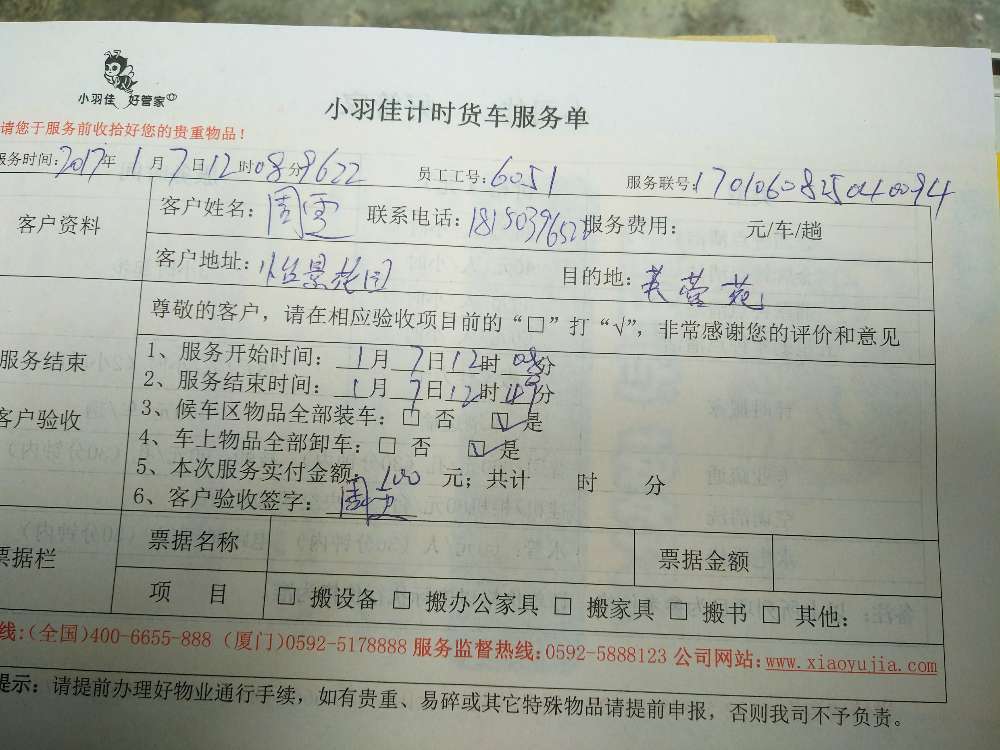 小羽佳 好管家
小羽佳计时货车服务单
请您于服务前收拾好您的贵重物品！
服务时间：2017年1月7日12时08分9622 员工工号：6051 服务联号：1701060825040094
客户资料
客户姓名：周雪 联系电话：服务费用： 元/车/趟
客户地址：怡景花园 目的地：芙蓉苑
尊敬的客户，请在相应验收项目前的“□”打“√”，非常感谢您的评价和意见
服务结束
客户验收
1、服务开始时间：1月7日12时08分
2、服务结束时间：1月7日12时49分
3、候车区物品全部装车：□ 否 ☑ 是
4、车上物品全部卸车：□ 否 ☑ 是
5、本次服务实付金额：100元；共计 时 分
6、客户验收签字：周雪
票据栏
票据名称 票据金额
项 目 □ 搬设备 □ 搬办公家具 □ 搬家具 □ 搬书 □ 其他：
线：(全国)400-6655-888 (厦门)0592-5178888 服务监督热线：0592-5888123 公司网站：www.xiaoyujia.com
提示：请提前办理好物业通行手续，如有贵重、易碎或其它特殊物品请提前申报，否则我司不予负责。